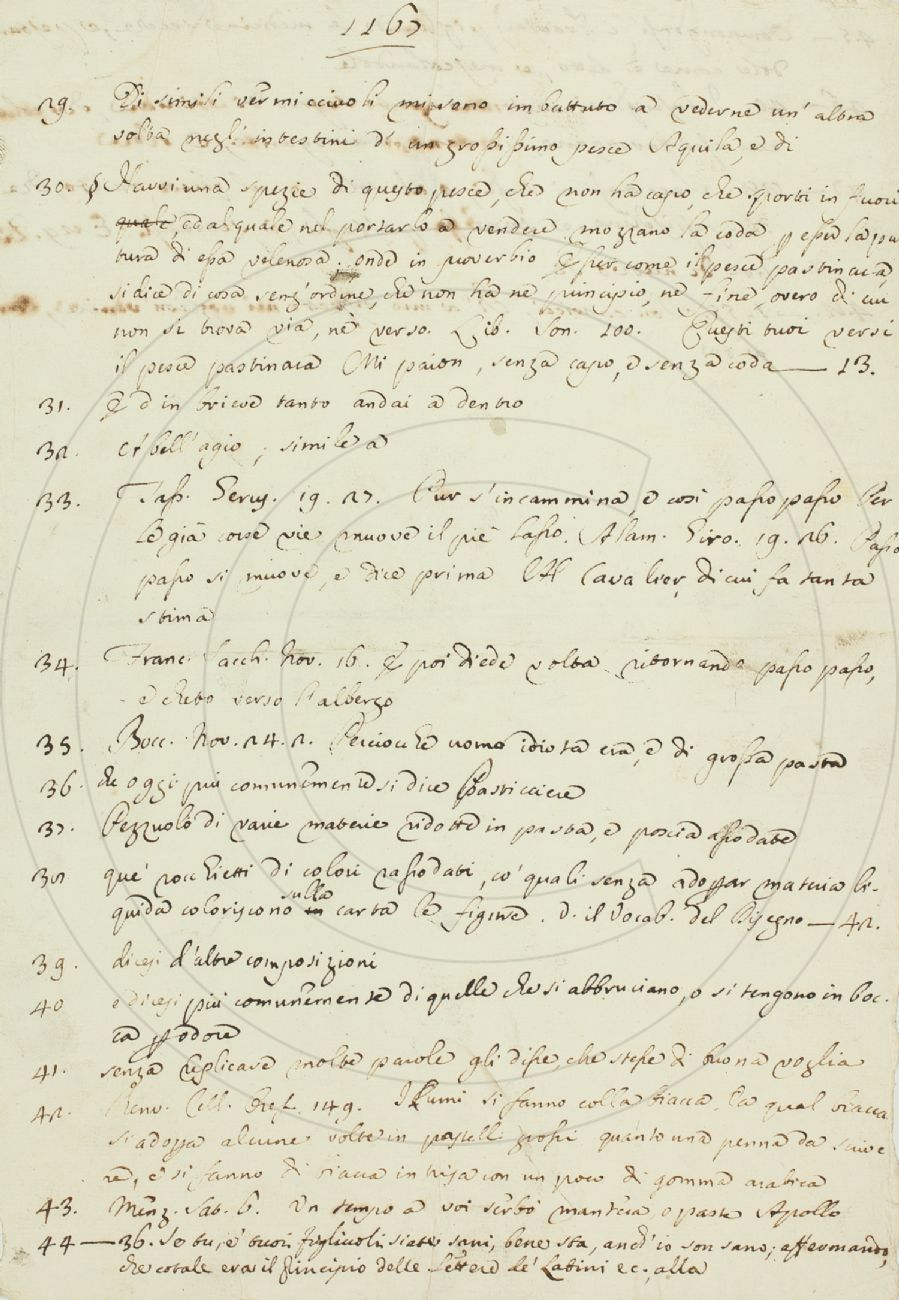 1167
29. Di simili vermicciuoli mi sono imbattuto a vederne un' altra
volta negl' intestini d' un grossissimo pesce Aquila, e di
30. Havvi una spezie di questo pesce, che non ha capo, che sporti in fuori
quale, ed al quale nel portarlo a vendere mozzano la coda p esser la pun
tura di essa velenosa; onde in proverbio Esser come il pesce pastinaca,
si dice di cosa senz' ordine, che non ha nè principio, nè fine, overo di cui
non si trova via, nè verso. Lib. Son. 100. Questi tuoi versi
il pesce pastinaca Mi paion, senza capo, e senza coda — 13.
31. E d in brieve tanto andai a dentro
32. A bell' agio; simile a
33. Tass. Gerus. 19. 27. Pur s' incammina, e così passo passo Per
le già corse vie muove il piè lasso. Alam. Giro. 19. 26. Passo
passo si muove, e dice prima Al Cavalier, di cui fa tanta
stima
34. Franc. Sacch. Nov. 16. E poi diede volta ritornando passo passo,
e cheto verso l' albergo
35. Bocc. Nov. 24. 2. Perciocchè uomo idiota era, e di grossa pasta
36. che oggi più comunemente si dice Pasticciere
37. Pezzuolo di varie materie ridotte in pasta, e poscia assodate
38 que' rocchietti di colori rassodati, co' quali senza adoprar materia li-
quida coloriscono sulla carta le figure. V. il Vocab. del Disegno — 42.
39. dicesi d' altre composizioni
40 e dicesi più comunemente di quelle che si abbruciano, o si tengono in boc-
ca p odore
41. senza replicare molte parole gli disse, che stesse di buona voglia
42. Benv. Cell. Oref. 149. I lumi si fanno colla biacca, la qual biacca
si adopra alcune volte in pastelli grossi quanto una penna da scive
re, e si fanno di biacca intrisa con un poco di gomma arabica
43. Menz. Sat. 6. Un tempo a voi serbò manteca, o paste Apollo
44 — 36. Se tu, e' tuoi figliuoli siate sani, bene sta, anch' io son sano; affermando,
che cotale era il principio delle lettere de' Latini ec., alla